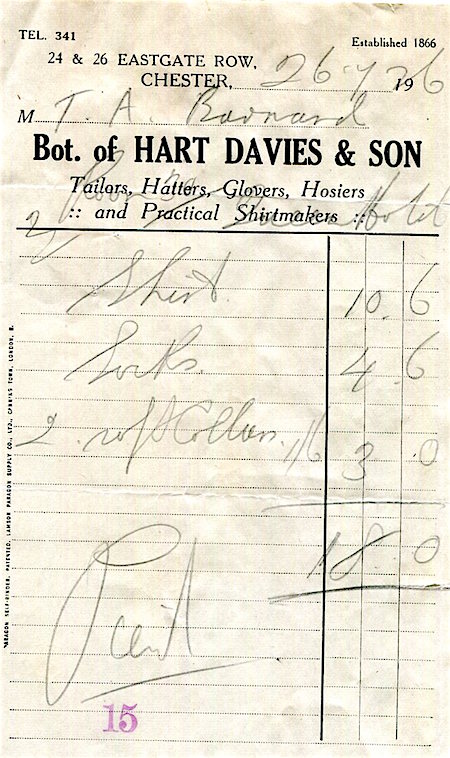 TEL. 341
Established 1866
24 & 26 EASTGATE ROW,
CHESTER, 26.7 1926
M T. A. Barnard
Bot. of HART DAVIES & SON
Tailors, Hatters, Glovers, Hosiers
:: and Practical Shirtmakers ::
Hotel
Shirt. 10.6
Socks. 4.6
2. soft Collars. 1/6 3.0
18.0
Paid
15
PARAGON SELF-BINDER, PATENTED, LAMSON PARAGON SUPPLY CO., LTD., CANNING TOWN, LONDON, E.